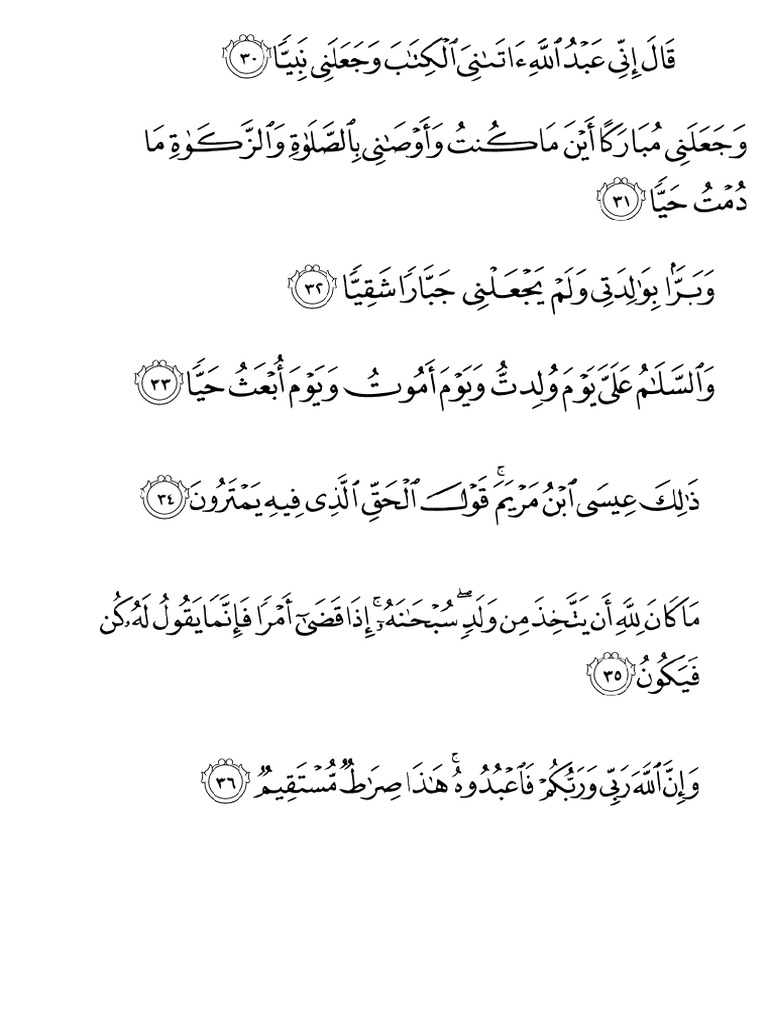 قَالَ إِنِّى عَبْدُ ٱللَّهِ ءَاتَىٰنِىَ ٱلْكِتَٰبَ وَجَعَلَنِى نَبِيًّا ٣٠
وَجَعَلَنِى مُبَارَكًا أَيْنَ مَا كُنتُ وَأَوْصَٰنِى بِٱلصَّلَوٰةِ وَٱلزَّكَوٰةِ مَا
دُمْتُ حَيًّا ٣١
وَبَرًّۢا بِوَٰلِدَتِى وَلَمْ يَجْعَلْنِى جَبَّارًا شَقِيًّا ٣٢
وَٱلسَّلَٰمُ عَلَىَّ يَوْمَ وُلِدتُّ وَيَوْمَ أَمُوتُ وَيَوْمَ أُبْعَثُ حَيًّا ٣٣
ذَٰلِكَ عِيسَى ٱبْنُ مَرْيَمَ ۚ قَوْلَ ٱلْحَقِّ ٱلَّذِى فِيهِ يَمْتَرُونَ ٣٤
مَا كَانَ لِلَّهِ أَن يَتَّخِذَ مِن وَلَدٍ ۖ سُبْحَٰنَهُۥٓ ۚ إِذَا قَضَىٰٓ أَمْرًا فَإِنَّمَا يَقُولُ لَهُۥ كُن
فَيَكُونُ ٣٥
وَإِنَّ ٱللَّهَ رَبِّى وَرَبُّكُمْ فَٱعْبُدُوهُ ۚ هَٰذَا صِرَٰطٌ مُّسْتَقِيمٌ ٣٦